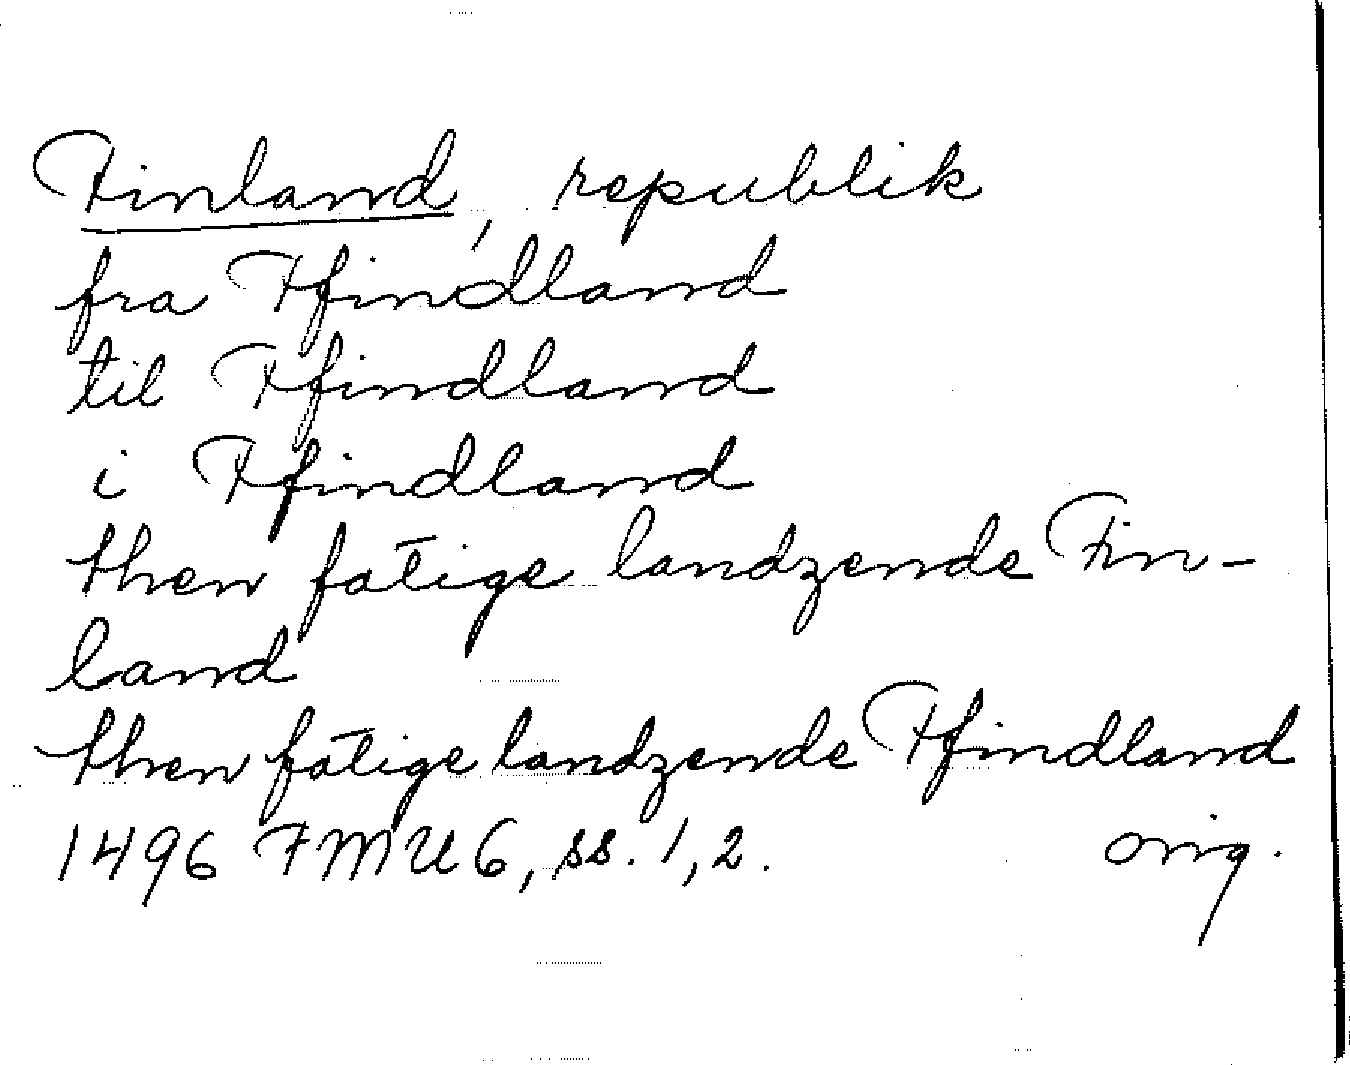 Finland, republik
fra Ffindland
til Ffindland
i Ffindland
then fatige landzende Fin-
land
then fatige landzende Ffindland
1496 FMU 6, ss. 1, 2. orig.